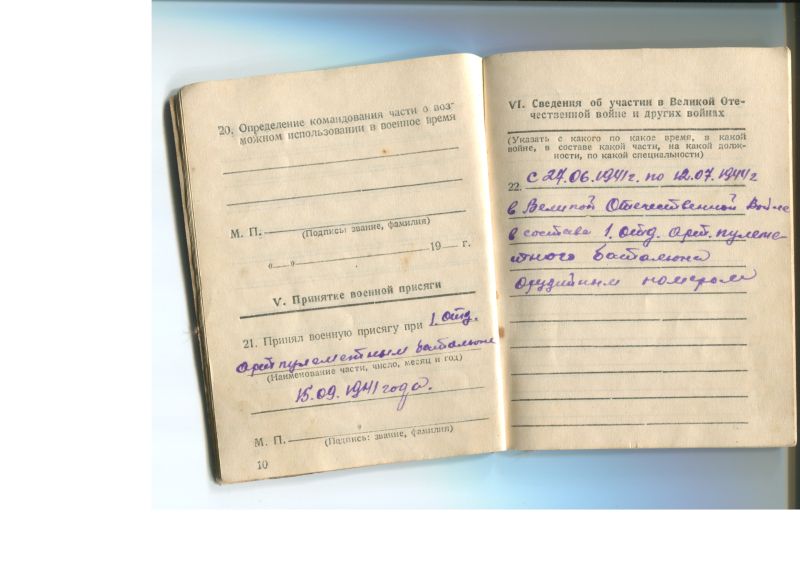 20. Определение командования части о воз-
можном использовании в военное время
М. П.
(Подпись: звание, фамилия)
«__»____19__ г.
V. Принятие военной присяги
21. Принял военную присягу при 1. отд.
артпулеметным батальоне
(Наименование части, число, месяц и год)
15.09.1941 года.
М. П.
(Подпись: звание, фамилия)
10
VI. Сведения об участии в Великой Оте-
чественной войне и других войнах
(Указать с какого по какое время, в какой
войне, в составе какой части, на какой долж-
ности, по какой специальности)
22. С 27.06.1941г. по 12.07.1944г
в Великой Отечественной Войне
в составе 1. отд. арт. пулеме-
тного батальона
орудийным номером